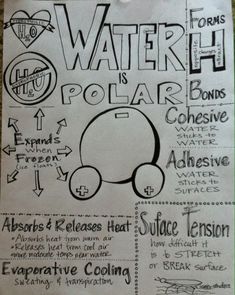 H₂O
H₂O
WATER
is
POLAR
FORMS
H
BONDS
Cohesive
WATER
sticks to
WATER
Adhesive
WATER
sticks to
SUFACES
Expands
when
Frozen
(ice floats)
Absorbs & Releases Heat
• Absorbs heat from warm air
• Releases heat from cool air
more moderate temps near water.
Evaporative Cooling
Sweating & transpiration
Suface Tension
how difficult it
is to STRETCH
or BREAK surface.